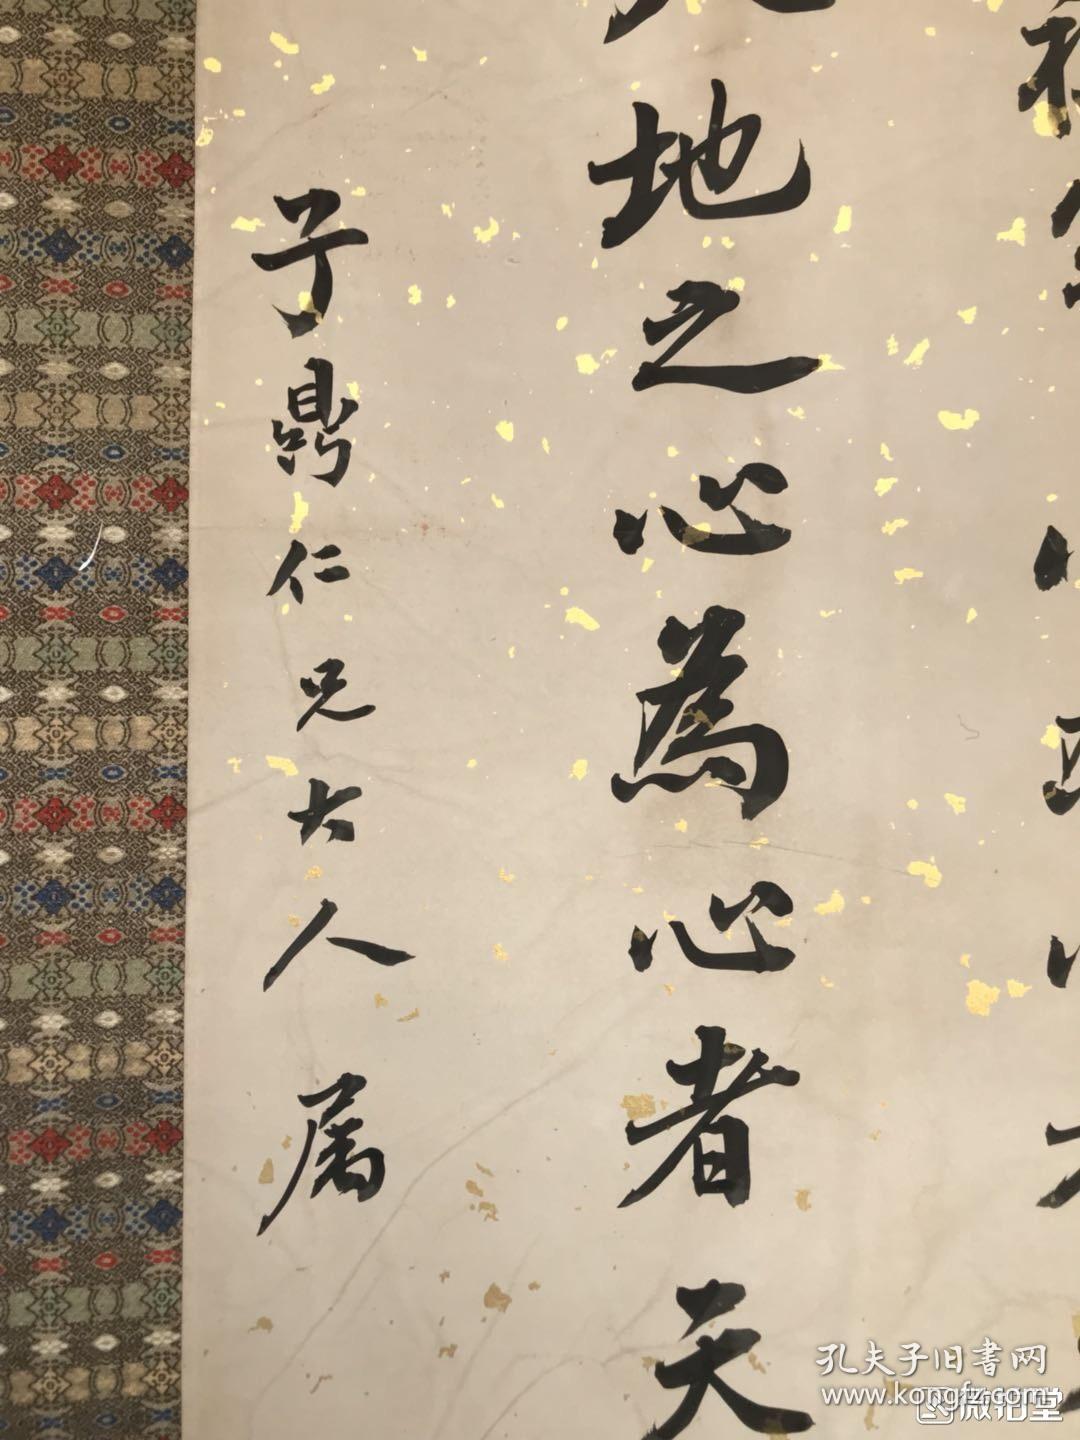 地之心為心者天
子鼎仁兄大人属
孔夫子旧書网
www.kongfz.com
微拍堂